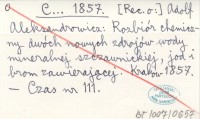 C... 1857. [Rec. o:] Adolf
Aleksandrowicz: Rozbiór chemicz-
ny dwóch nowych zdrojów wody
mineralnej szczawnickiej, jod i
brom zawierającej. Kraków 1857.
— Czas nr 111.